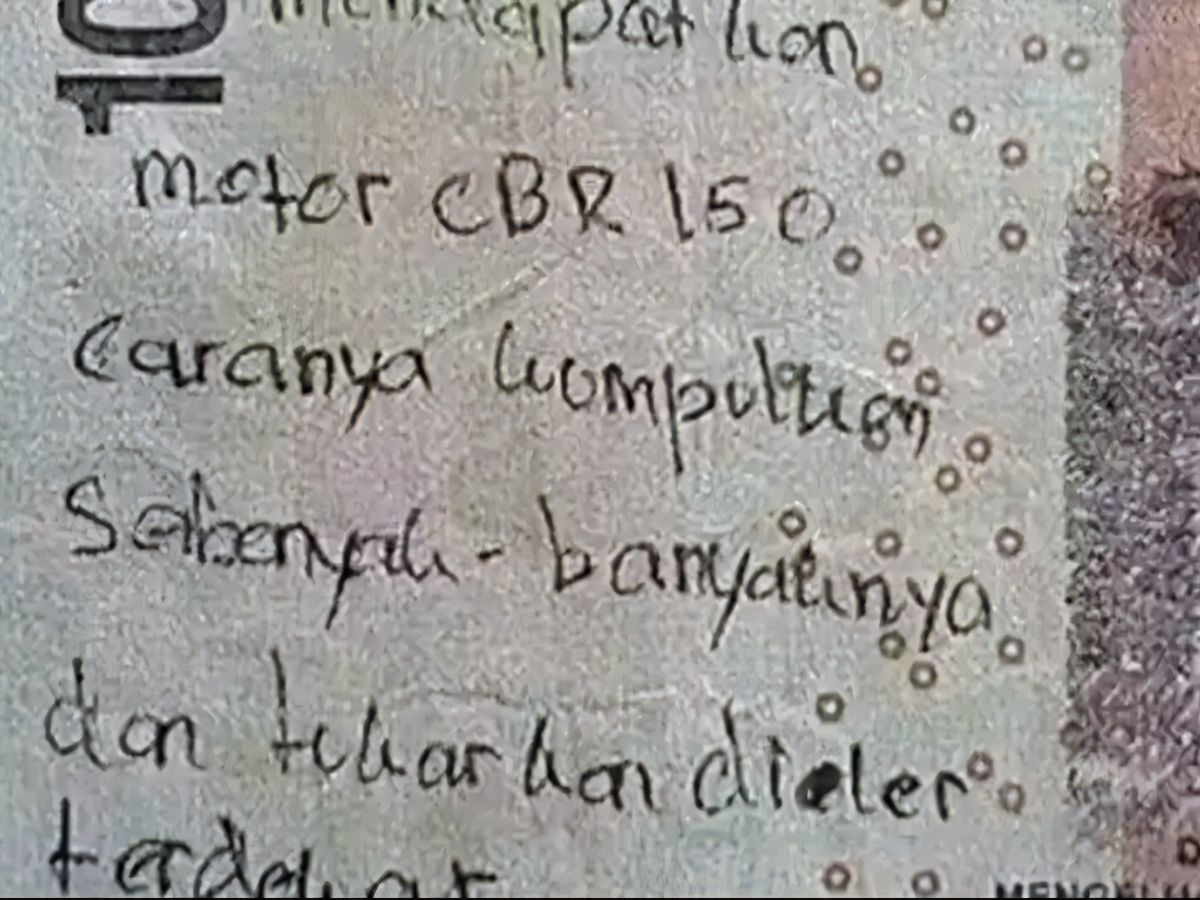 10
mendapatkan
motor CBR 150
caranya kumpulkan
Sebanyak-banyaknya
dan tukarkan dieler
terdekat